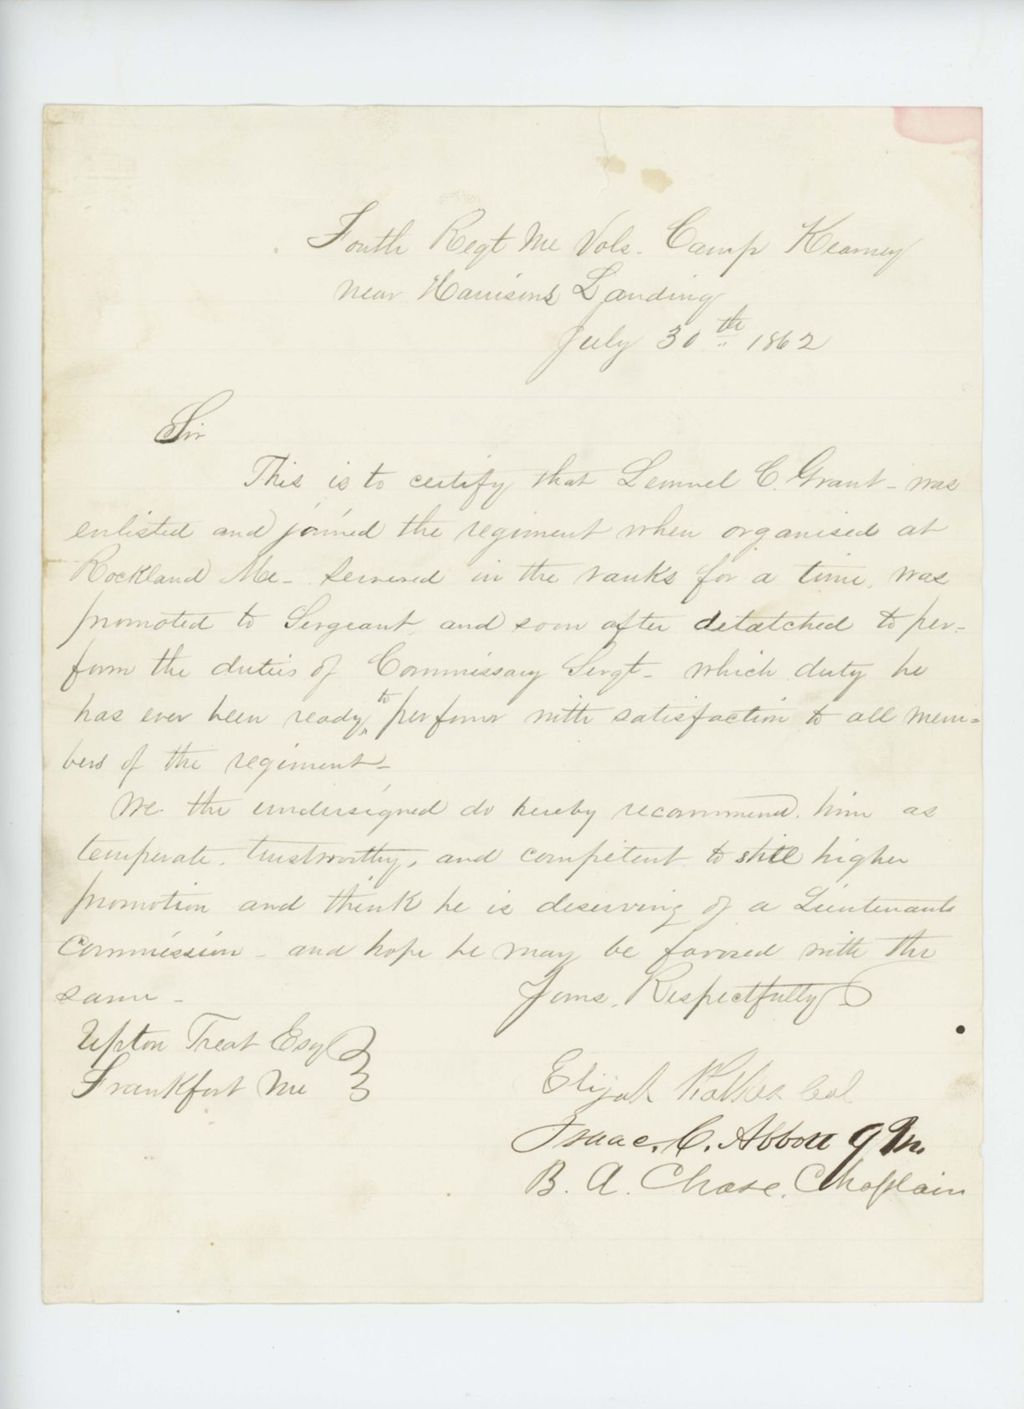 Fouth Regt Me Vols. Camp Kearney
near Harrisons Landing
July 30th 1862
Sir
This is to certify that Lemuel C. Grant - was
enlisted and joined the regiment when organised at
Rockland Me - Served in the ranks for a time, was
promoted to Sergeant, and soon after detatched to per-
form the duties of Commissary Sergt - which duty he
has ever been ready to perform with satisfaction to all mem-
bers of the regiment -
We the undersigned do hereby recommend him as
temperate, trustworthy, and competent to still higher
promotion and think he is deserving of a Lieutenants
Commission - and hope he may be favored with the
same -
Yours Respectfully
Upton Treat Esq
Frankfort Me
Elijah Walker Col
Isaac. C. Abbott Q M.
B. A. Chase, Chaplain